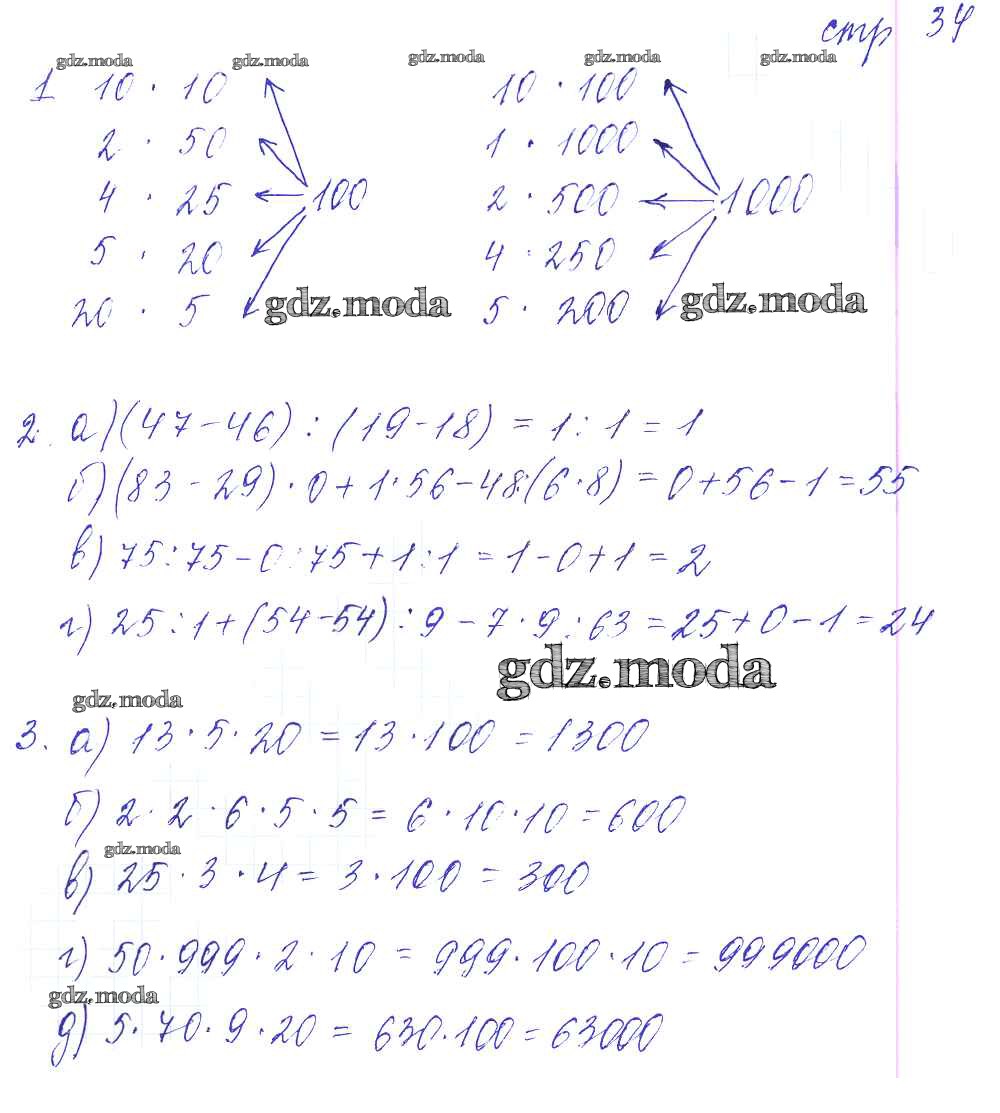 стр 34
gdz.moda gdz.moda gdz.moda gdz.moda gdz.moda
1 10 · 10 10 · 100
2 · 50 1 · 1000
4 · 25 100 2 · 500 1000
5 · 20 4 · 250
20 · 5 gdz.moda 5 · 200 gdz.moda
2. а) (47 - 46) : (19 - 18) = 1 : 1 = 1
б) (83 - 29) · 0 + 1 · 56 - 48 : (6 · 8) = 0 + 56 - 1 = 55
в) 75 : 75 - 0 : 75 + 1 : 1 = 1 - 0 + 1 = 2
г) 25 : 1 + (54 - 54) : 9 - 7 · 9 : 63 = 25 + 0 - 1 = 24
gdz.moda
gdz.moda
3. а) 13 · 5 · 20 = 13 · 100 = 1300
б) 2 · 2 · 6 · 5 · 5 = 6 · 10 · 10 = 600
gdz.moda
в) 25 · 3 · 4 = 3 · 100 = 300
г) 50 · 999 · 2 · 10 = 999 · 100 · 10 = 999000
gdz.moda
д) 5 · 70 · 9 · 20 = 630 · 100 = 63000